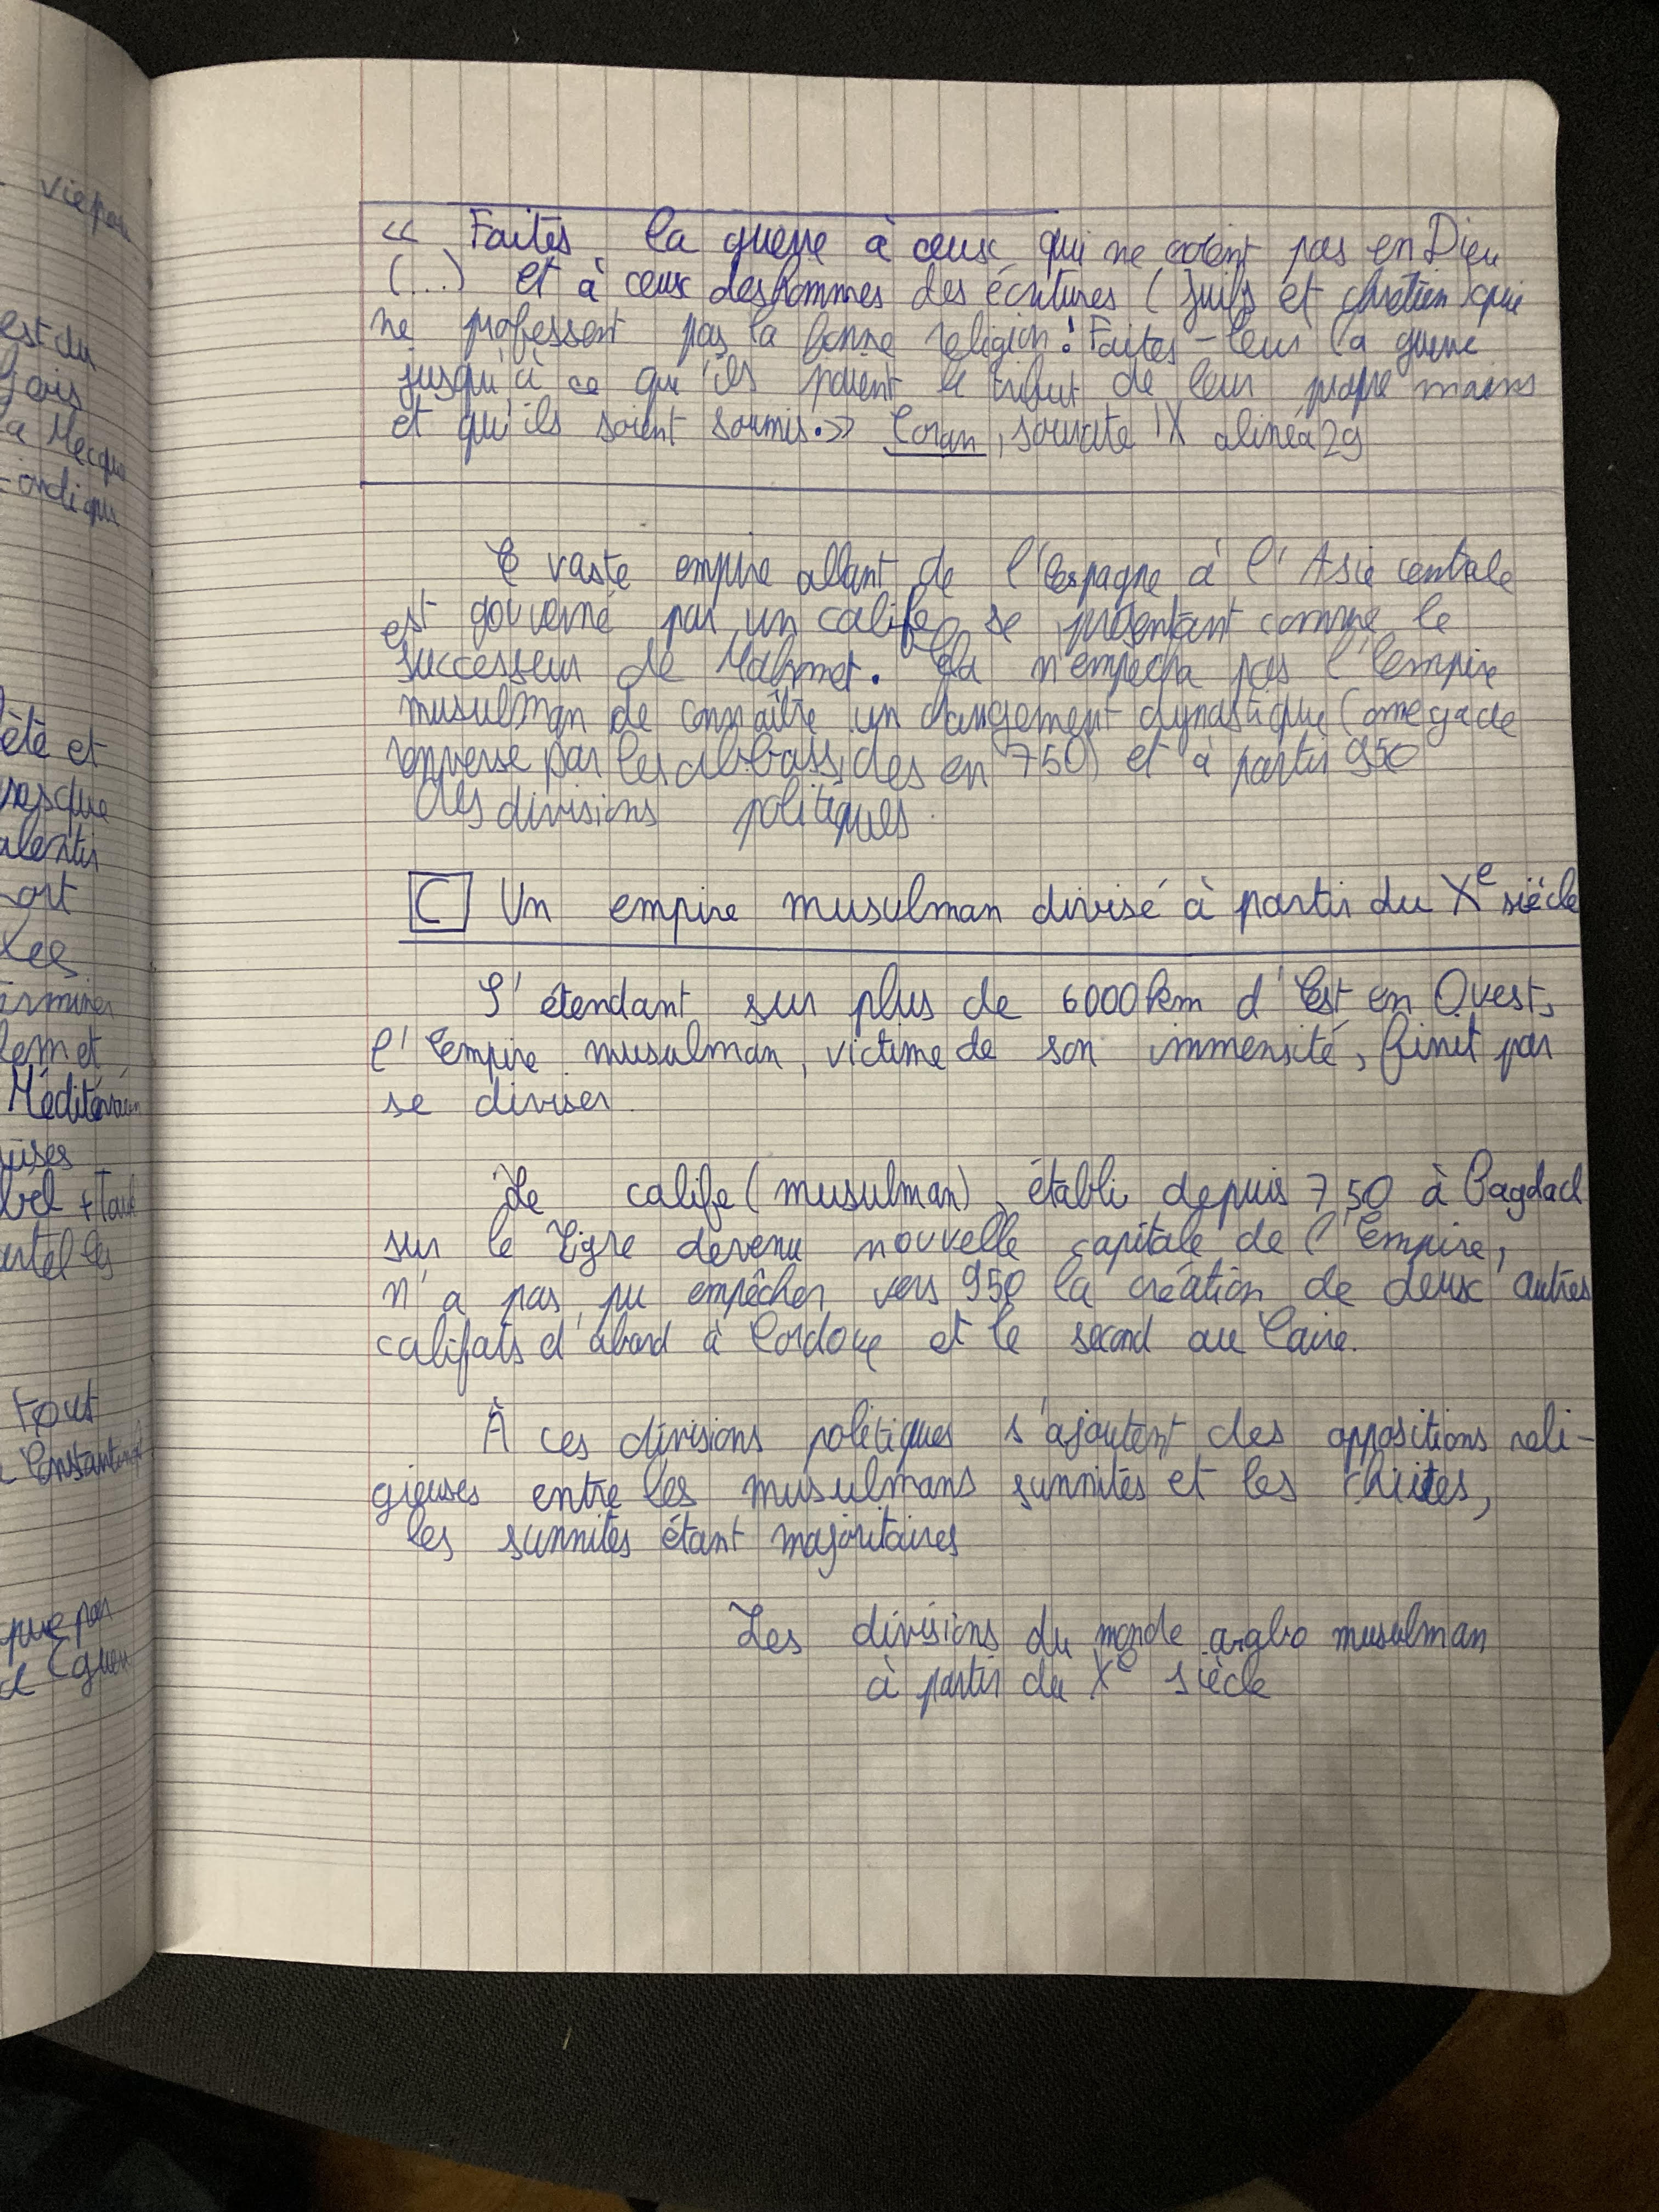 vie par
est du
fois
a Mecque
ète et
alentir
ort
les
Méditerranéen
Tout
que par
« Faites la guerre à ceux qui ne croient pas en Dieu
(...) et à ceux des hommes des écritures (juifs et chrétien) qui
ne professent pas la bonne religion ! Faites-leur la guerre
jusqu'à ce que ils paient le tribut de leur propre mains
et qu'ils soient soumis. » Coran, sourate IX alinéa 29
Ce vaste empire allant de l'Espagne à l'Asie centrale
est gouverné par un calife se présentant comme le
successeur de Mahomet. Cela n'empecha pas l'Empire
musulman de connaître un changement dynastique (omegade
renverse par les abbassides en 750) et à partir 950
des divisions politiques.
C Un empire musulman divisé à partir du Xe siècle
S'étendant sur plus de 6000 km d'Est en Ouest,
l'Empire musulman, victime de son immensité, finit par
se diviser.
Le calife (musulman), établi depuis 750 à Bagdad
sur le Tigre devenu nouvelle capitale de l'Empire,
n'a pas pu empêcher vers 950 la création de deux autres
califats d'abord à Cordoue et le second au Caire.
À ces divisions politiques s'ajoutent des oppositions reli-
gieuses entre les musulmans sunnites et les chiites,
les sunnites étant majoritaires
Les divisions du monde arabo musulman
à partir du Xe siècle